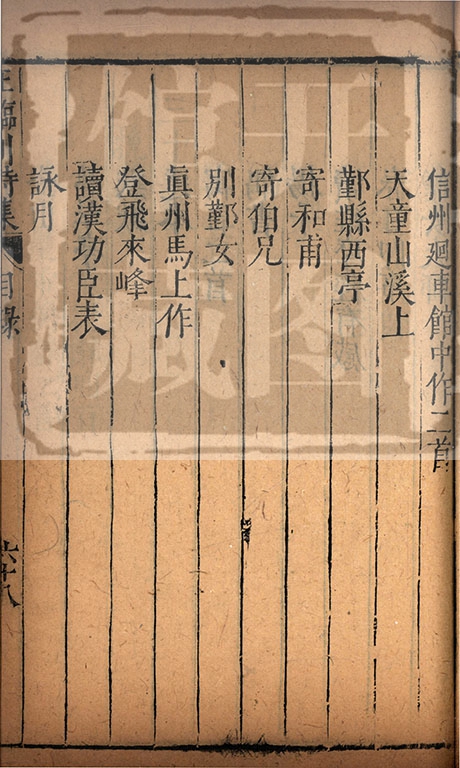 信州廻車館中作二首
天童山溪上
鄞縣西亭
寄和甫
寄伯兄
別鄞女
眞州馬上作
登飛來峰
讀漢功臣表
詠月
王臨川詩集
目錄
六十八